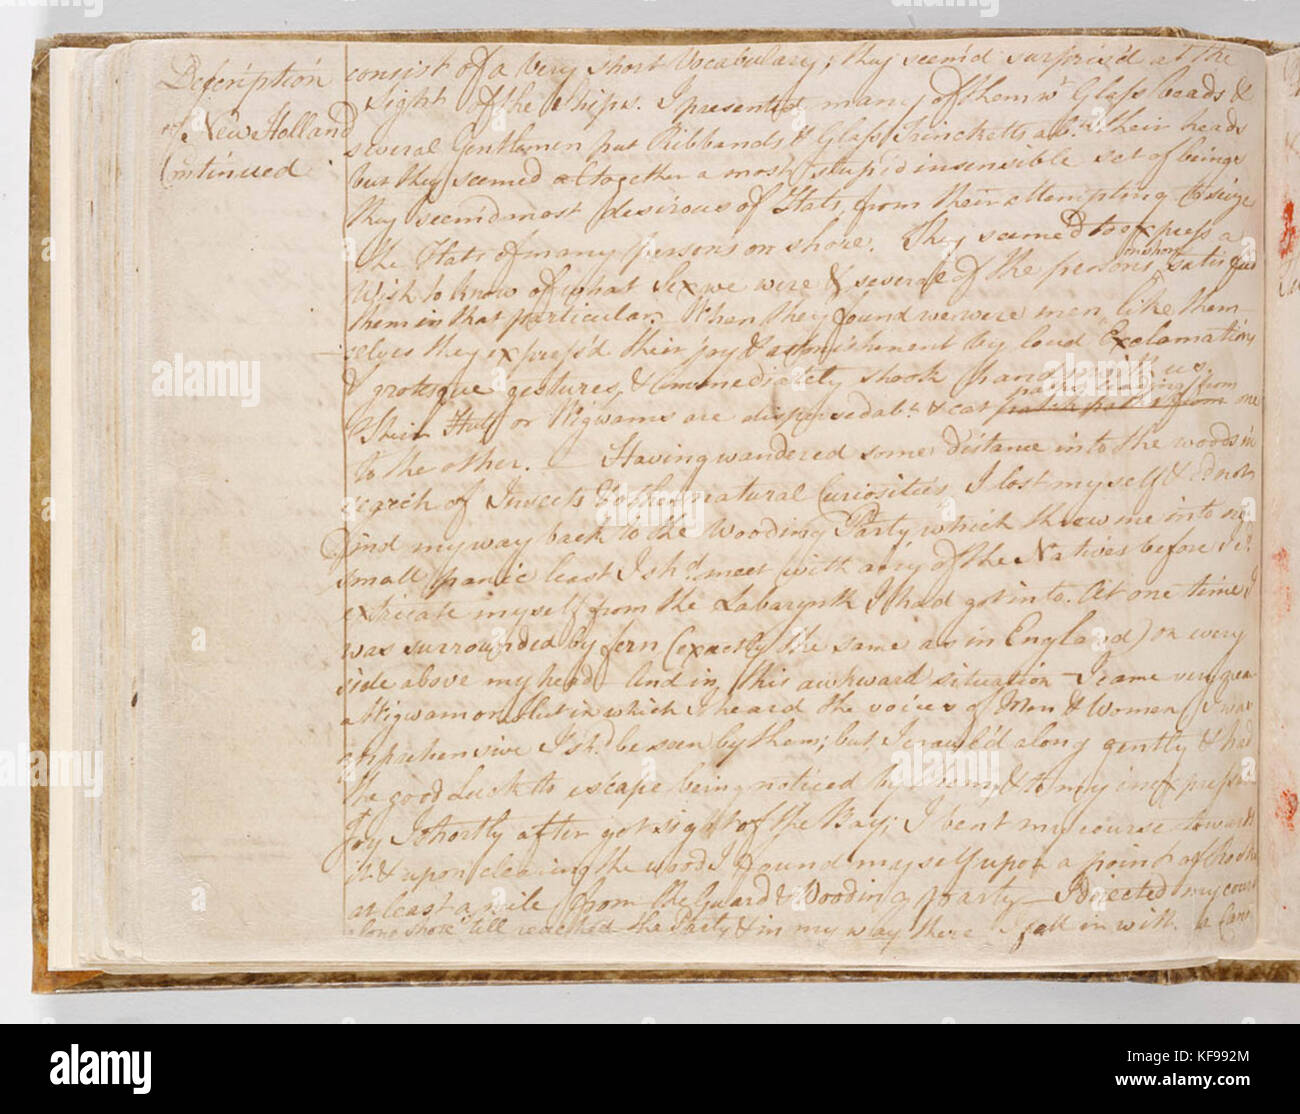 Description
of New Holland
Continued
consist of a very short Vocabulary; they seem'd surpriz'd at the
sight of the Ships. I presented many of them wt Glass beads &
several Gentlemen put Ribbands & Glass Trincketts abt their heads
but they seemed altogether a most stupid insensible set of beings
they seem'd most desirous of Hats, from their attempting to seize
the Hats of many persons on shore. They seemed to express a
wish to know of what Sex we were & several of the persons on shore satisfied
them in that particular. When they found we were men like them
-selves they express'd their joy & astonishment by loud Exclamations
& grotesque gestures, & immediately shook hands with us.
Their Huts or Wigwams are dispersed abt & leading from one
to the other. — Having wandered some distance into the woods in
search of Insects & other natural Curiosities I lost myself & cd not
find my way back to the Wooding Party which threw me into no
small panic least I shd meet with any of the Natives before I cd
extricate myself from the Labarynth I had got into. At one time I
was surrounded by fern (exactly the same as in England) on every
side above my head And in this awkward situation I came very near
a Wigwam or Hut in which I heard the voices of Men & Women, I was
apprehensive I shd be seen by them; but I crawl'd along gently & had
the good Luck to escape being noticed by them, & to my inexpressible
Joy I shortly after got sight of the Bay; I bent my course towards
it & upon clearing the woods found myself upon a point of Rocks
at least a mile from the Guard & Wooding party — I directed my course
along shore till reached the Party & in my way there I fell in with a
alamy
alamy
Image ID: KF992M
www.alamy.com